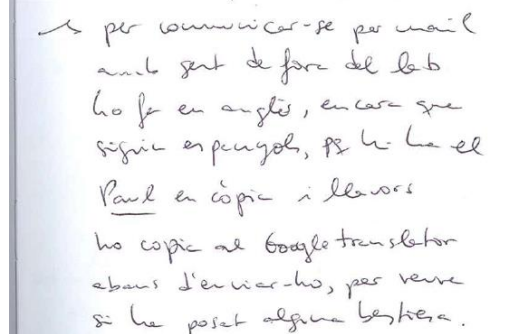 ↳ per comunicar-se per mail
amb gent de fora del lab
ho fa en anglès, encara que
siguin espanyols, pq hi ha el
Paul en còpia i llavors
ho copia al Google translator
abans d'enviar-ho, per veure
si ha posat alguna bestiesa.